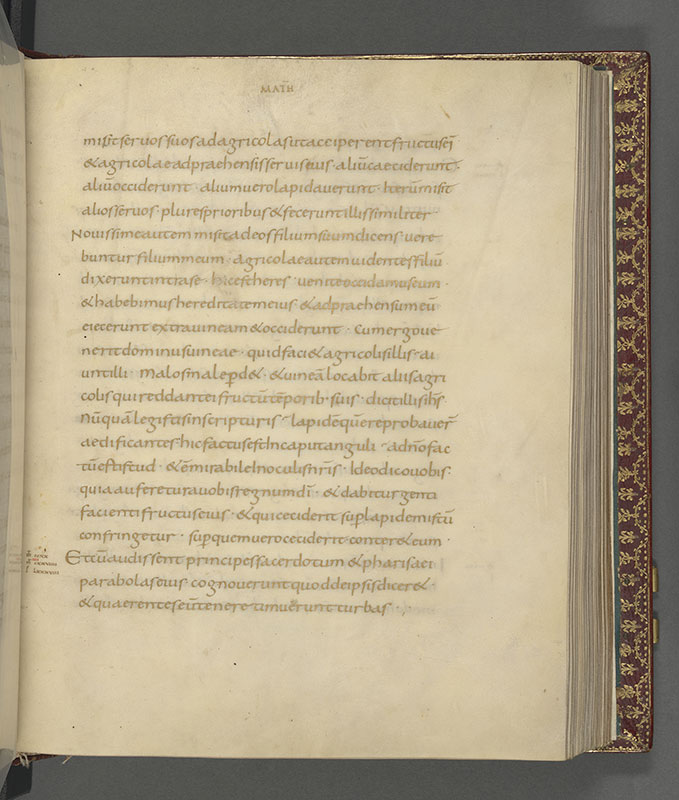 MATH
misit seruos suos ad agricolas ut acciperent fructus eī
& agricolae adpraehensis seruis eius · aliū caeciderunt ·
aliū occiderunt · alium uero lapidauerunt · Iterū misit
alios seruos · plures prioribus & fecerunt illis similiter
Nouissime autem misit ad eos filium suum dicens uere
buntur filium meum · agricolae autem uidentes filiū
dixerunt intra se · hic est heres · uenite occidamus eum ·
& habebimus hereditatem eius · & adpraehensum eū
eiecerunt extra uineam & occiderunt · Cum ergo ue
nerit dominus uineae · quid faci& agricolis illis · ai
unt illi · Malos male perd& · & uineā locabit aliis agri
colis qui reddant ei fructū tēporib· suis · dicit illis ihs
Nūquā legistis in scripturis · lapidē quē reprobauer̄
aedificantes hic factus est In caput anguli · a dnō fac
tū est istud · & ē mirabile In oculis nr̄is · Ideo dico uobis ·
quia auferetur a uobis regnum dī · & dabitur genti
facienti fructus eius · & qui ceciderit sup lapidem istū
confringetur · sup quem uero ceciderit conter& eum ·
Et cū audissent principes sacerdotum & pharisaei
parabolas eius cognouerunt quod de ipsis dicer& ·
& quaerentes eū tenere timuerunt turbas ·